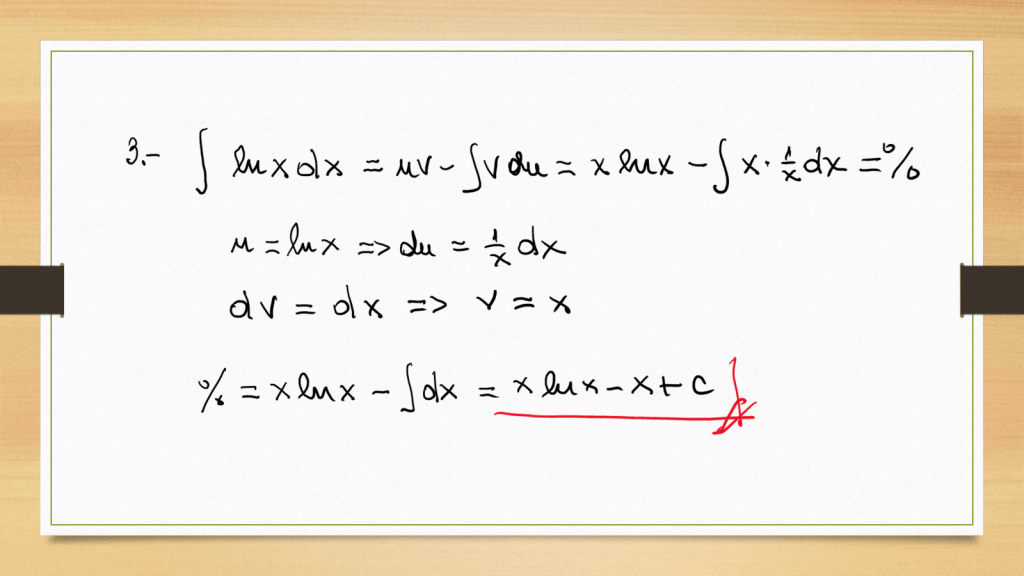 3.- ∫ ln x dx = uv - ∫ v du = x ln x - ∫ x · 1/x dx = %
u = ln x => du = 1/x dx
dv = dx => v = x
% = x ln x - ∫ dx = x ln x - x + c